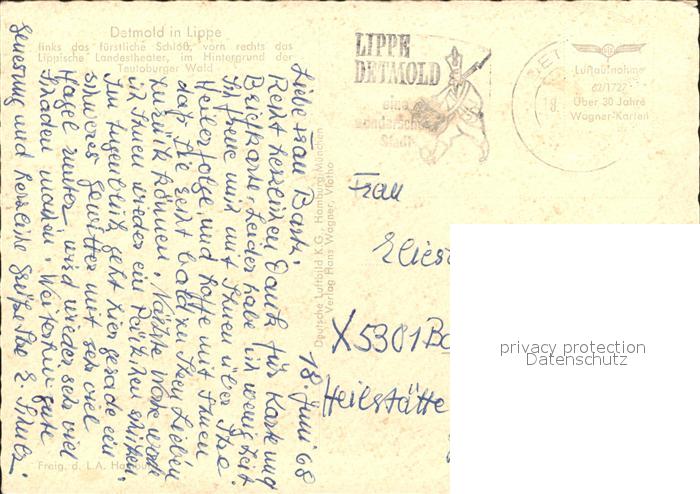 Detmold in Lippe
links das fürstliche Schloß, vorn rechts das
Lippische Landestheater, im Hintergrund der
Teutoburger Wald
LIPPE
DETMOLD
eine
wunderschöne
Stadt
Luftaufnahme
62/1722
Über 30 Jahre
Wagner-Karten
18. Juni 68
Liebe Frau Bark.
Recht herzlichen Dank für Karte und
Briefkarte. Leider habe ich wenig Zeit.
Ich freue mich mit Ihnen über Ihre
Heilerfolge, und hoffe mit Ihnen
daß Sie recht bald zu Ihren Lieben
zurück können. Nächste Woche werde
ich Ihnen wieder ein Päckchen schicken.
Im Augenblick geht hier gerade ein
schweres Gewitter mit sehr viel
Hagel runter, wird wieder sehr viel
Schaden machen. Weiterhin gute
Genesung und herzliche Grüße Ihre E.
Deutsche Luftbild K.G., Hamburg/München
Verlag Hans Wagner, Vlotho
Frau
X5301 Ba
Heilstätte
privacy protection
Datenschutz
Freig. d. L.A. Hamburg